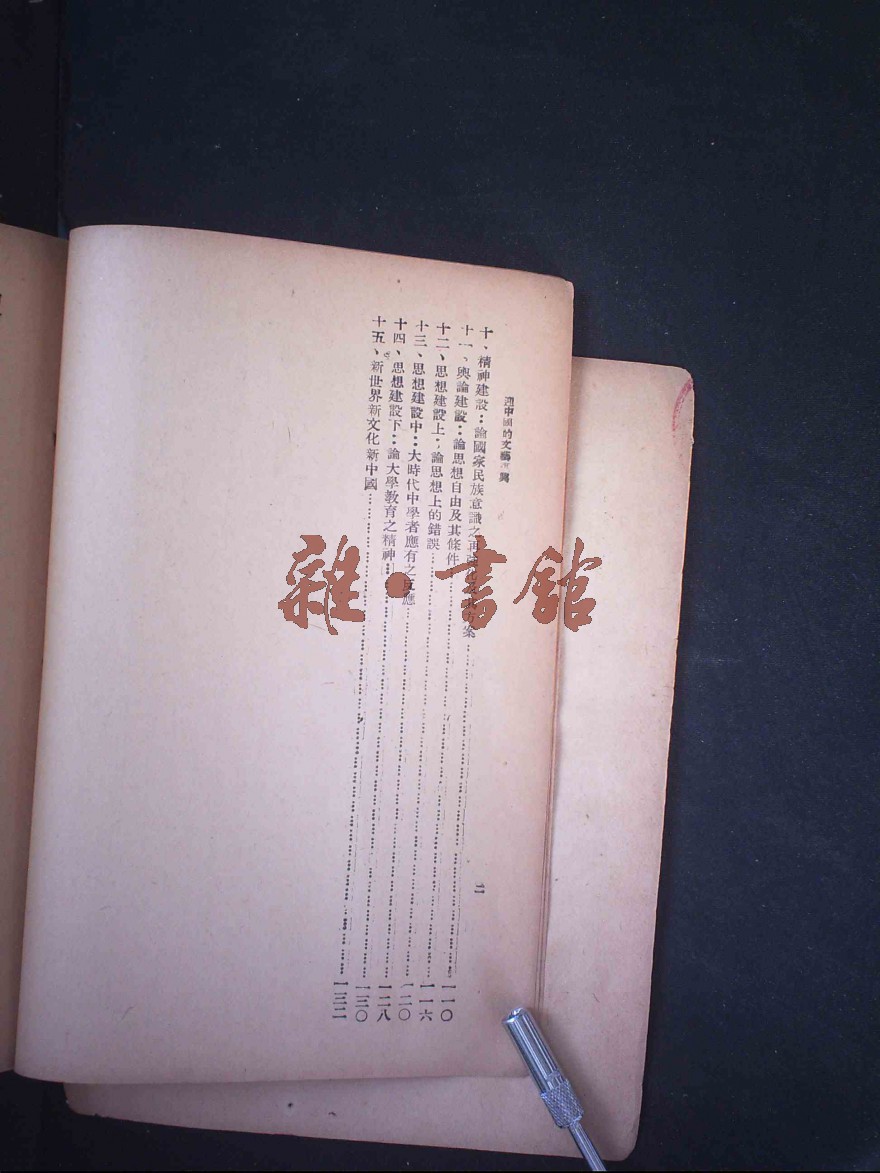 迎中國的文藝復興
二
十、精神建設：論國家民族意識之再強化及其方案……一一〇
十一、輿論建設：論思想自由及其條件……一一六
十二、思想建設上：論思想上的錯誤……一二〇
十三、思想建設中：大時代中學者應有之反應……一二八
十四、思想建設下：論大學教育之精神……一三〇
十五、新世界新文化新中國……一三二
雜·書館